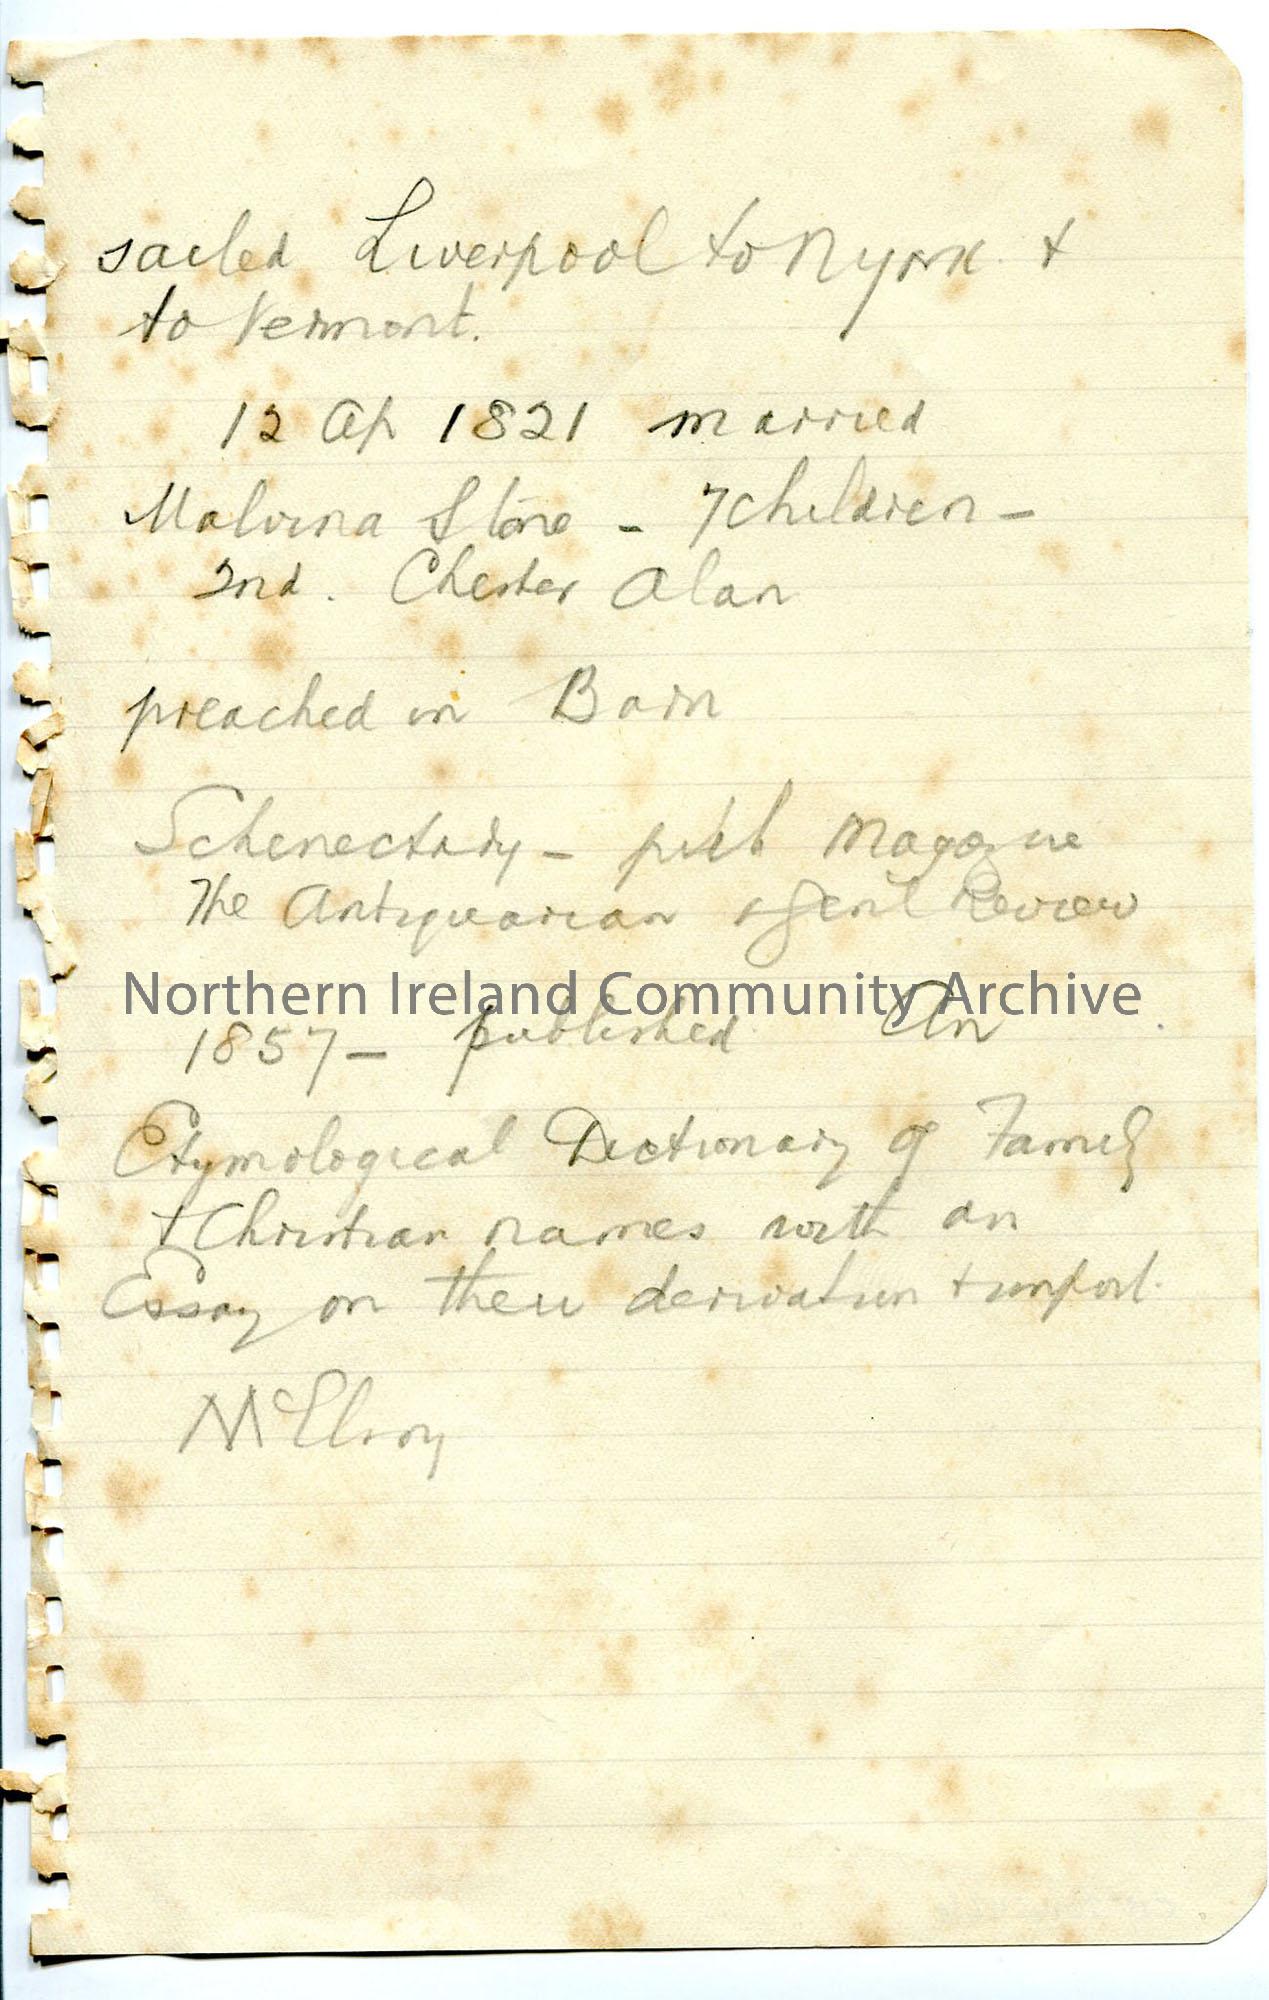 sailed Liverpool to N York &
to Vermont.
12 Ap 1821 married
Malvina Stone - 7 children -
2nd. Chester Alan
preached in Barn
Schenectady - pub Magazine
The Antiquarian & Genl Review
Northern Ireland Community Archive
1857 - published An
Etymological Dictionary of Family
& Christian names with an
Essay on their derivation & import.
McElroy